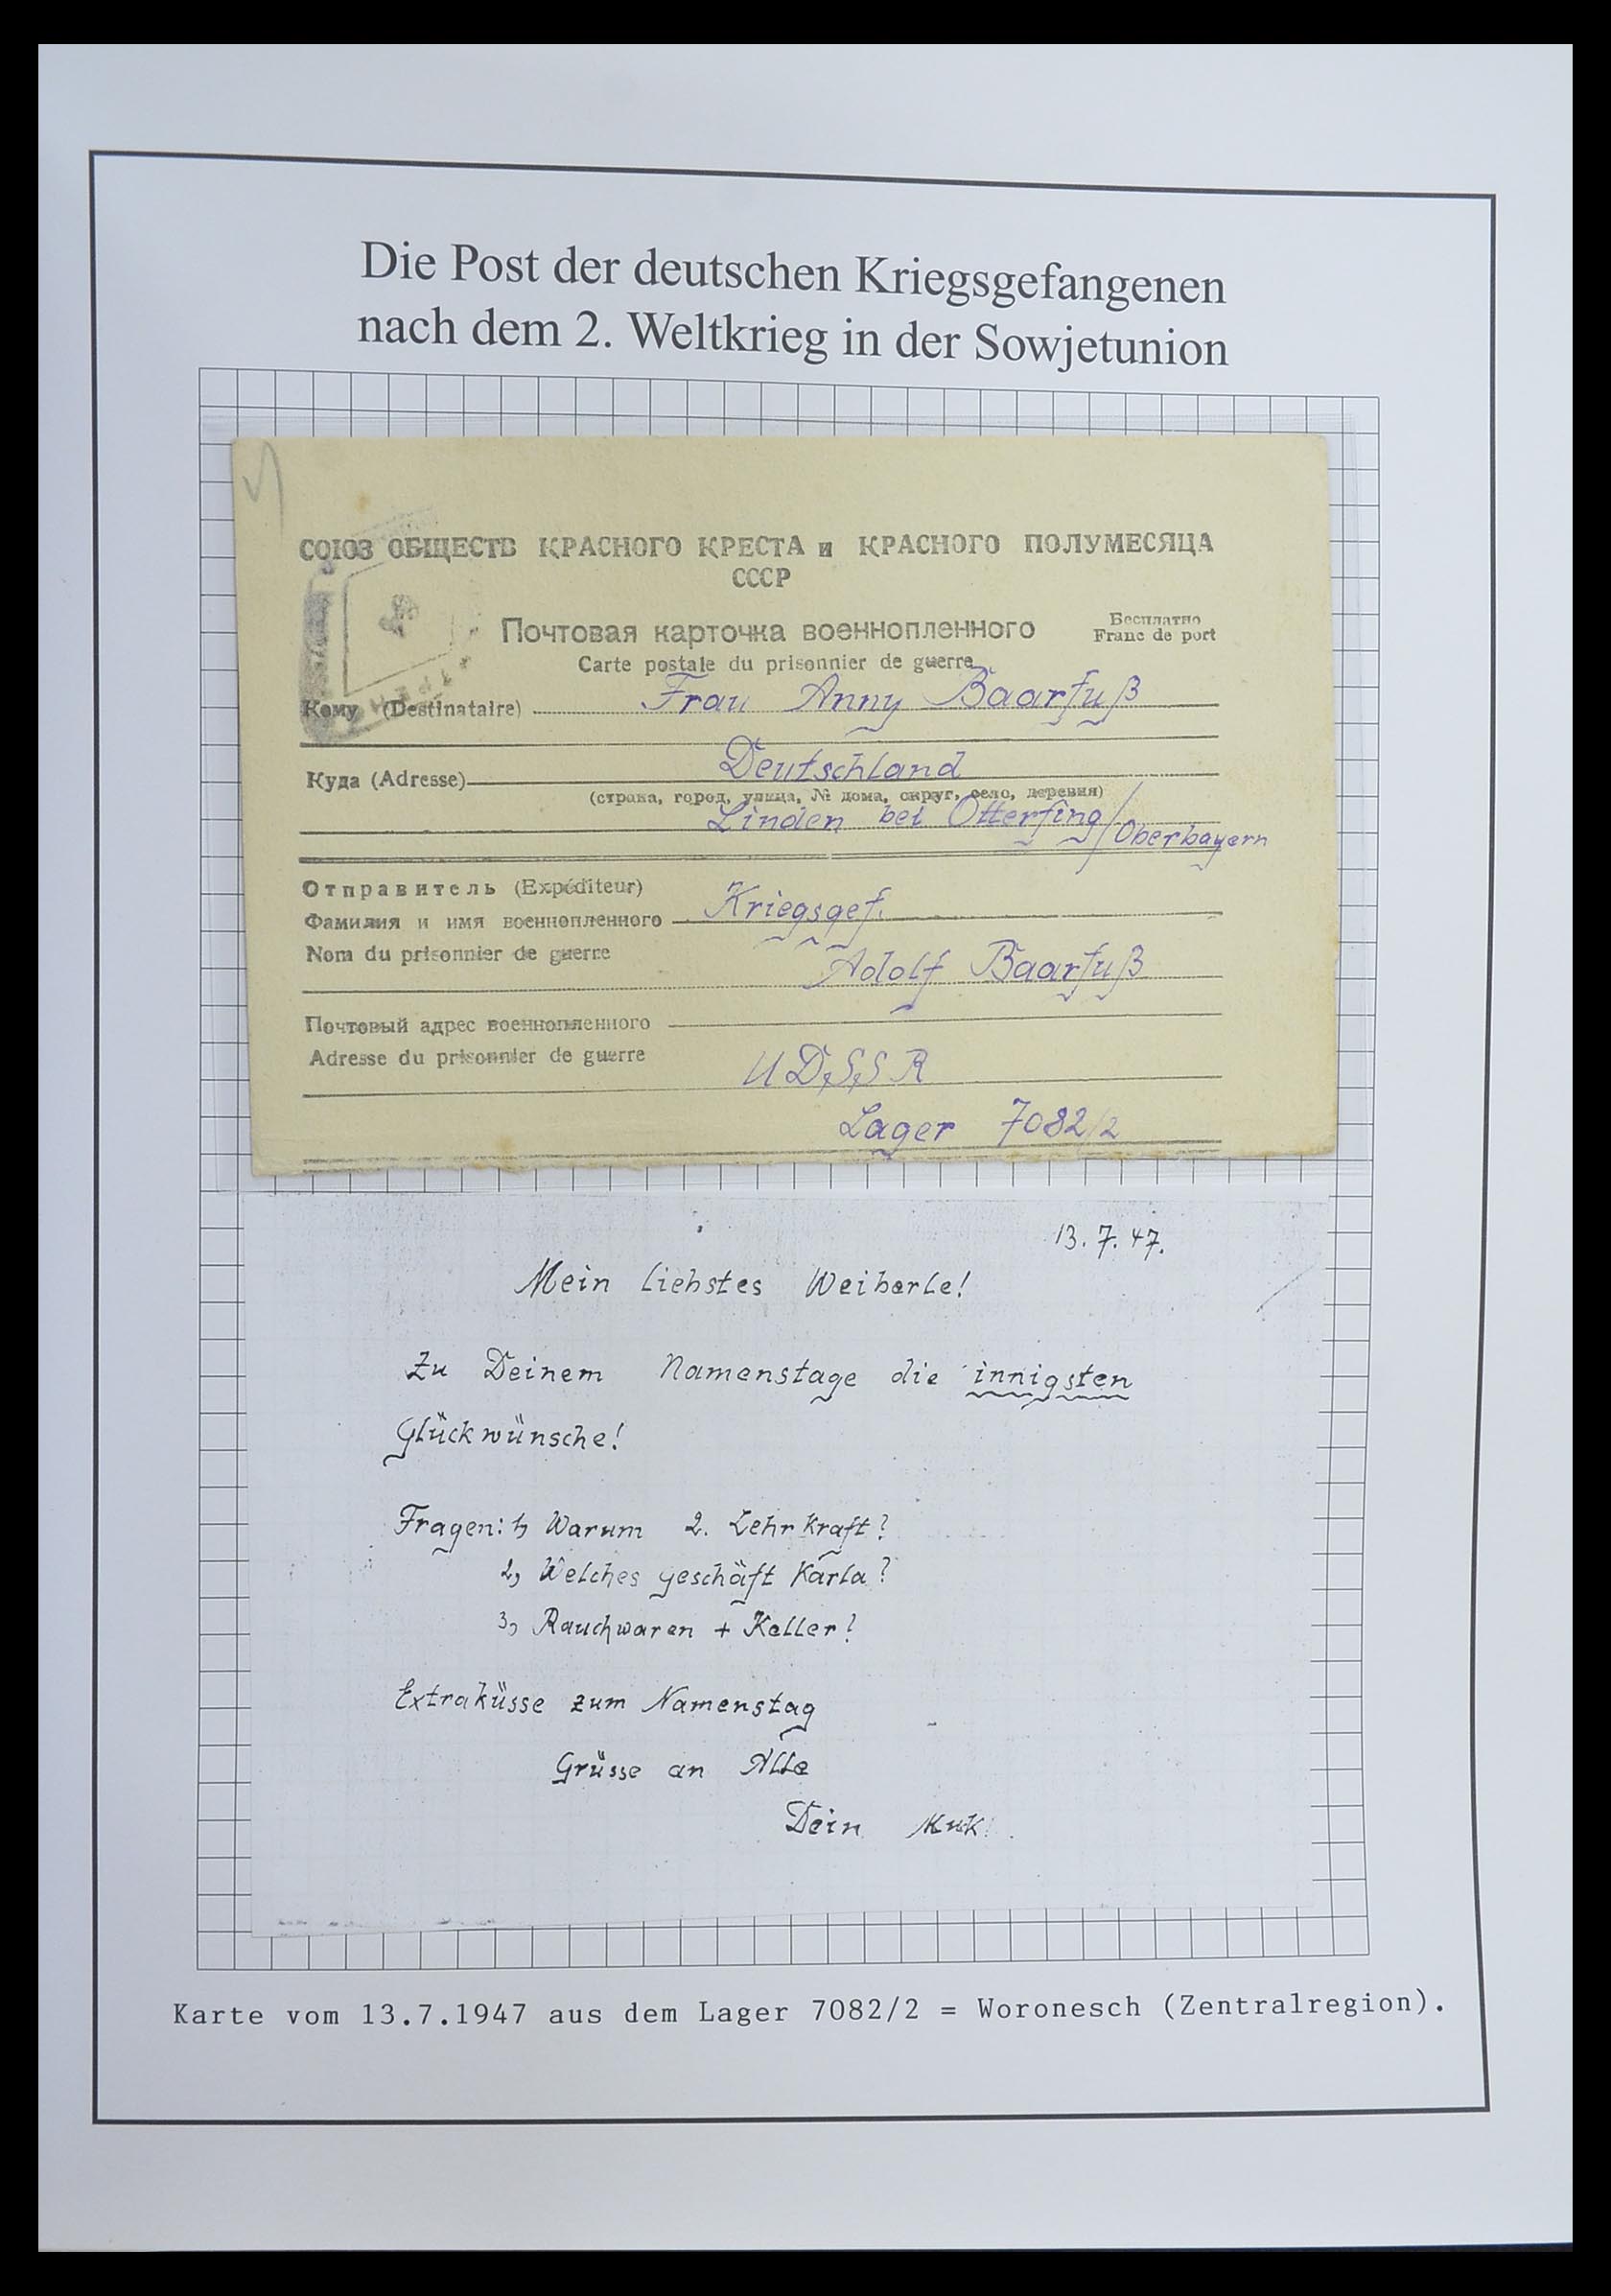 Die Post der deutschen Kriegsgefangenen
nach dem 2. Weltkrieg in der Sowjetunion
СОЮЗ ОБЩЕСТВ КРАСНОГО КРЕСТА и КРАСНОГО ПОЛУМЕСЯЦА
СССР
Почтовая карточка военнопленного
Бесплатно
Franc de port
Carte postale du prisonnier de guerre
Кому (Destinataire) Frau Anny Baarfuß
Куда (Adresse) Deutschland
(страна, город, улица, № дома, округ, село, деревня)
Linden bei Otterfing/Oberbayern
Отправитель (Expéditeur)
Фамилия и имя военнопленного Kriegsgef.
Nom du prisonnier de guerre Adolf Baarfuß
Почтовый адрес военнопленного
Adresse du prisonnier de guerre UDSSR
Lager 7082/2
13.7.47.
Mein liebstes Weiberle!
Zu Deinem Namenstage die innigsten
Glückwünsche!
Fragen: 1, Warum 2. Lehrkraft?
2, Welches Geschäft Karla?
3, Rauchwaren + Keller?
Extraküsse zum Namenstag
Grüsse an Alle
Dein
Karte vom 13.7.1947 aus dem Lager 7082/2 = Woronesch (Zentralregion).